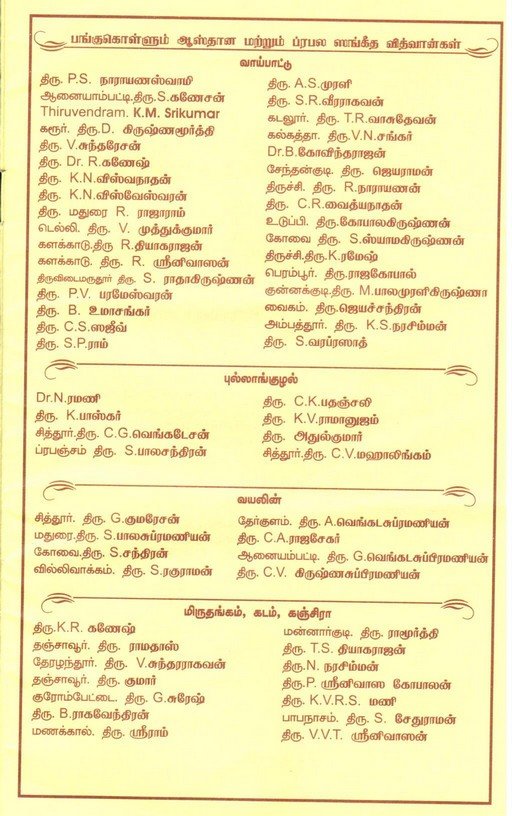 பங்குகொள்ளும் ஆஸ்தான மற்றும் ப்ரபல ஸங்கீத வித்வான்கள்
வாய்பாட்டு
திரு. P.S. நாராயணஸ்வாமி
ஆனையாம்பட்டி.திரு.S.கணேசன்
Thiruvendram. K.M. Srikumar
கரூர். திரு.D. கிருஷ்ணமூர்த்தி
திரு. V.சுந்தரேசன்
திரு. Dr. R.கணேஷ்
திரு. K.N.விஸ்வநாதன்
திரு. K.N.விஸ்வேஸ்வரன்
திரு. மதுரை R. ராஜாராம்
டெல்லி. திரு. V. முத்துக்குமார்
களக்காடு.திரு R.தியாகராஜன்
களக்காடு. திரு. R. ஸ்ரீனிவாஸன்
திருவிடைமருதூர் திரு. S. ராதாகிருஷ்ணன்
திரு. P.V. பரமேஸ்வரன்
திரு. B. உமாசங்கர்
திரு. C.S.ஸஜீவ்
திரு. S.P.ராம்
திரு. A.S.முரளி
திரு. S.R.வீரராகவன்
கடலூர். திரு. T.R.வாசுதேவன்
கல்கத்தா. திரு.V.N.சங்கர்
Dr.B.கோவிந்தராஜன்
சேந்தன்குடி. திரு. ஜெயராமன்
திருச்சி. திரு. R.நாராயணன்
திரு. C.R.வைத்யநாதன்
உடுப்பி. திரு.கோபாலகிருஷ்ணன்
கோவை திரு. S.ஸ்யாமகிருஷ்ணன்
திருச்சி.திரு.K.ரமேஷ்
பெரம்பூர். திரு.ராஜகோபால்
குன்னக்குடி.திரு. M.பாலமுரளிகிருஷ்ணா
வைகம். திரு.ஜெயச்சந்திரன்
அம்பத்தூர். திரு. K.S.நரசிம்மன்
திரு. S.வரப்ரஸாத்
புல்லாங்குழல்
Dr.N.ரமணி
திரு. K.பாஸ்கர்
சித்தூர்.திரு. C.G.வெங்கடேசன்
ப்ரபஞ்சம் திரு. S.பாலசந்திரன்
திரு. C.K.பதஞ்சலி
திரு. K.V.ராமானுஜம்
திரு. அதுல்குமார்
சித்தூர்.திரு. C.V.மஹாலிங்கம்
வயலின்
சித்தூர். திரு. G.குமரேசன்
மதுரை.திரு. S.பாலசுப்ரமணியன்
கோவை.திரு. S.சந்திரன்
வில்லிவாக்கம். திரு. S.ரகுராமன்
தேர்குளம். திரு. A.வெங்கடசுப்ரமணியன்
திரு. C.A.ராஜசேகர்
ஆனையம்பட்டி. திரு. G.வெங்கடசுப்பிரமணியன்
திரு. C.V. கிருஷ்ணசுப்பிரமணியன்
மிருதங்கம், கடம், கஞ்சிரா
திரு.K.R. கணேஷ்
தஞ்சாவூர். திரு. ராமதாஸ்
தேரழந்தூர். திரு. V.சுந்தரராகவன்
தஞ்சாவூர். திரு. குமார்
குரோம்பேட்டை. திரு. G.சுரேஷ்
திரு. B.ராகவேந்திரன்
மணக்கால். திரு. ஸ்ரீராம்
மன்னார்குடி. திரு. ராமூர்த்தி
திரு. T.S. தியாகராஜன்
திரு.N. நரசிம்மன்
திரு.P. ஸ்ரீனிவாஸ கோபாலன்
திரு. K.V.R.S. மணி
பாபநாசம். திரு. S. சேதுராமன்
திரு. V.V.T. ஸ்ரீனிவாஸன்